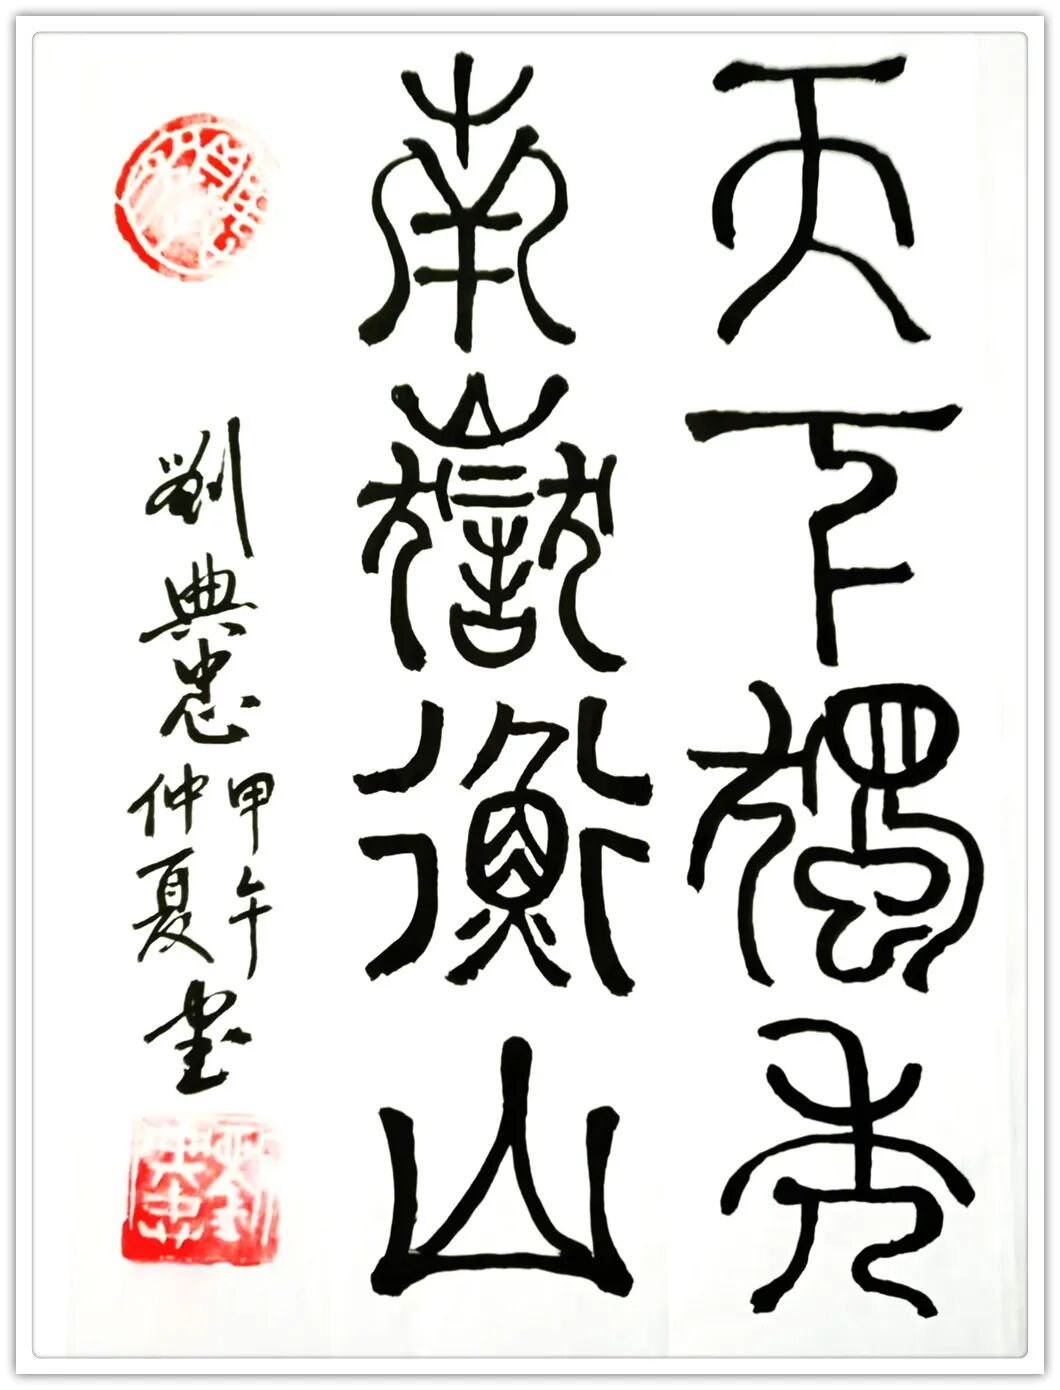 天下獨秀
南嶽衡山
甲午
劉典忠仲夏書
劉典忠